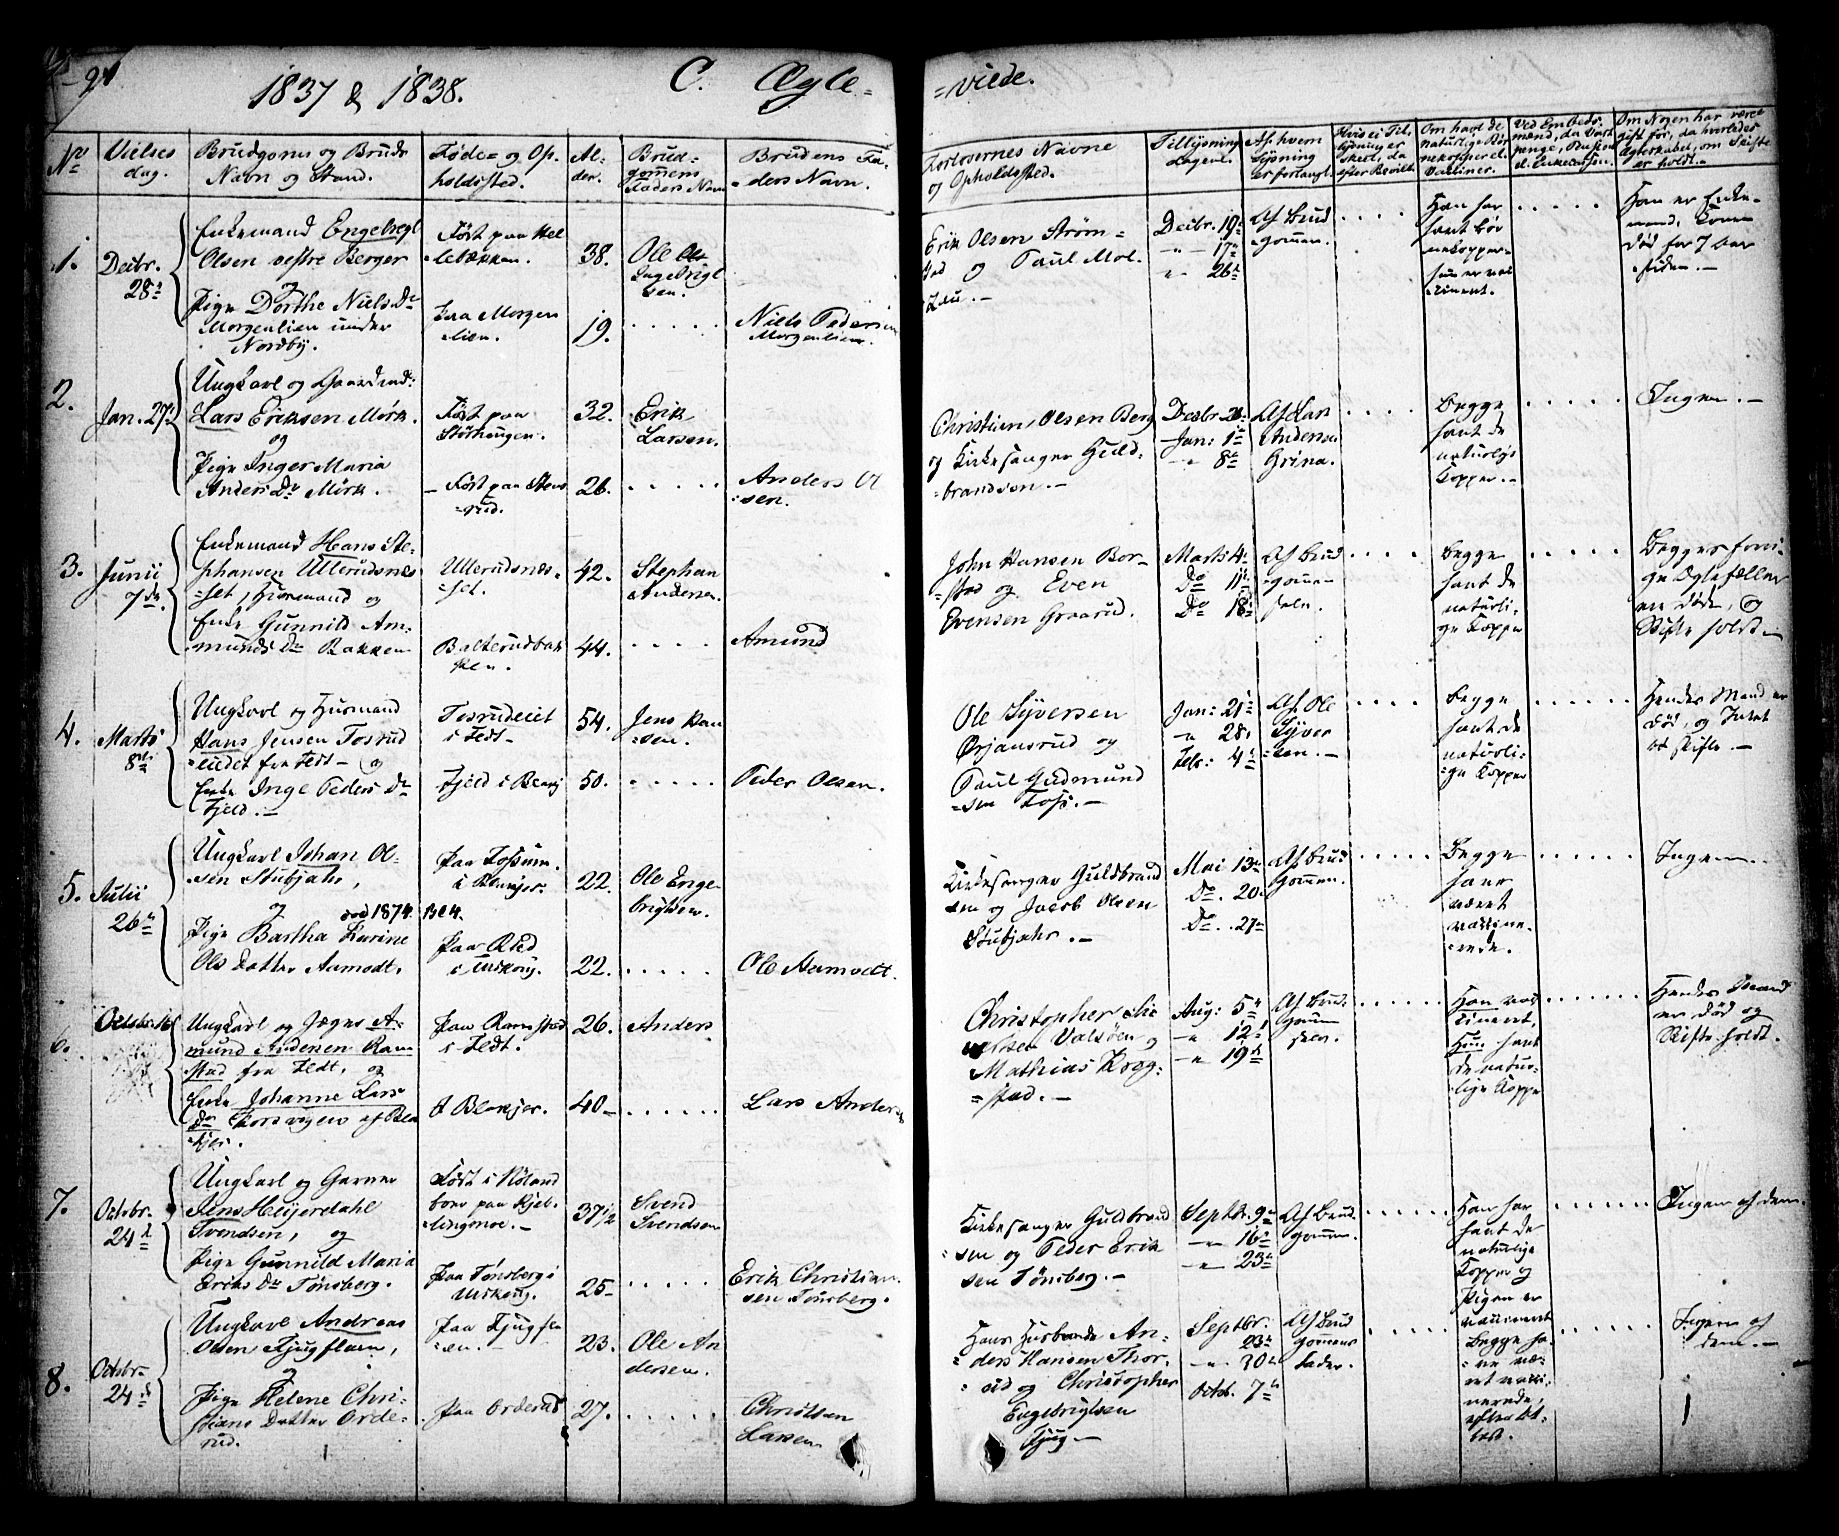 1837 & 1838. C. Ægte= =viede.
Nr
Vielses
dag.
Brudgoms og Bruds
Navn og Stand.
Føde= og Op.
holdssted.
Al-
der.
Brud-
gomens
Faders Navn
Brudens Fa-
ders Navn.
Forlovernes Navne
og Opholdssted.
Tillysnings
dagene.
Af hvem
Lysning
er forlangt.
Hvis ei Til-
lysning er
skeet, da
efter Bevill:
Om havt de
naturlige Bør-
nekopper el.
Vacciner.
Om Nogen har været
gift før, da hvorledes
Ægteskabet, om Skifte
er holdt.
1.
Decbr.
28de
Enkemand Engebregt
Olsen vestre Berger
og
Pige Dorthe Niels Dr
Morgenlien under
Nordby.
Født paa Kel-
lebækken.
Paa Morgen
lien.
38.
19.
Ole
Ingebrigt
sen.
Niels Pedersen
Morgenlien.
Erik Olsen Strøm=
stad og Paul Mol-
Decbr. 10de
" 17de
" 26de
Af Brud
gommen.
Han har
havt Bør
nekopper
hun er vac
cineret.
Han er Enke-
mand, Konen
død for 7 Aar
siden.
2.
Jan. 27de
Ungkarl og Gaardmd:
Lars Eriksen Mørk.
og
Pige Inger Maria
Anders Dr Mörk.
Født paa
Störhaugen.
Født paa Stens
rud.
32.
26.
Erik
Larsen.
Anders Ol
sen.
Christian Olsen Berg
og Kirkesanger Guld-
brandsen.
Decbr. 26
Jan: 1de
" 8de
Af Lars
Andersen
Grina.
Begge
havt de
naturlige
Kopper.
Ingen.
3.
Junii
7de
Enkemand Hans Ste-
phansen Ullerudsnes-
set, Huusmand og
Enke Gunnild Am-
munds Dr Bakken
Ullerudsnes-
set.
Balterudbak
ken.
42.
44.
Stephan
Andersen.
Amund
John Hansen Bor-
stad og Even
Evensen Graarud.
Marts 4de
Do 11te
Do 18de
Af Brud
gomme-
selv.
Begge
havt de
naturli-
ge Kopper
Begges forri-
ge Ægtefæller
ere døde, og
Skifte holdt
4.
Marts
8de
Ungkarl og Husmand
Hans Jensen Tosrud
eiedet fra Fedt og
Enke Inge Peders Dr
Fjeld.
Tosrudeiet
i Fedt
Fjeld i Blakj
54.
50.
Jens Han
sen.
Peder Olsen.
Ole Syversen
Ørjansrud og
Paul Gudmund
sen Foss.
Jan: 21de
" 28de
Febr: 4de
Af Ole
Syver
sen.
Begge
havt de
naturli-
ge Kopper
Hendes Mand er
død, og Intet
at skifte.
5.
Julii
26de
Ungkarl Johan Ol-
sen Stubjahr,
og død 1874. Bl4.
Pige Bartha Karine
Ols Datter Aamodt.
Paa Fossum.
i Blakjer.
Paa Aled
i Urskoug.
22.
22.
Ole Enge
brigtsen.
Ole Aamodt.
Kirkesanger Guldbrand
sen og Jacob Olsen
Stubjahr.
Mai 13de
Do. 20de
Do. 27de
Af Brud
gommen.
Begge
have
været
vaccine-
rede.
Ingen
6.
October 16
Ungkarl og Jæger A-
mund Andersen Ram
stad fra Fedt, og
Enke Johanne Lars
Dr Korsvigen af Bla
kjer.
Paa Ramstad
i Fedt.
I Blakjer.
26.
40
Anders
Lars Anders
Christopher
Valsøen og
Mathias Krog-
stad.
Aug: 5te
" 12te
" 19de
Af Brud
gomm
selv.
Han vac
cineret,
Hun havt
de natur-
lige Kopper
Hendes Mand
er død og
Skifte holdt.
7.
Octobr.
24de
Ungkarl og Garver
Jens Heijerdahl
Svendsen, og
Pige Gunnild Maria
Eriks Dr Tønsberg.
Født i Høland
boer paa Kjel-
lingmoe.
Paa Tønsberg i
Urskoug.
37½
25
Svend
Svendsen
Erik Christian
sen Tønsberg.
Kirkesanger Guldbrand
sen og Peder Erik
sen Tønsberg.
Septbr. 9de
" 16de
" 23de
Af Brud
gommen.
Han har
havt de
naturlige
Kopper og
Pigen er
vaccineret
Ingen af dem.
8.
Octobr
24de
Ungkarl Andreas
Olsen Kjugflaen,
og
Pige Helene Chri-
stians Datter Orde-
rud.
Paa Kjugfla
en.
Paa Orderud
23.
27.
Ole An
dersen.
Christian
Larsen
Hans Husbonde An-
ders Hansen Thor-
og Christopher
Engebrigtsen
Kjug
Septbr.
23de
" 30te
Octb. 7de
Af Brud
gommens
Fader.
Begge ha-
ve væ-
ret vacci-
nerede,
efter At-
test.
Ingen af
dem.